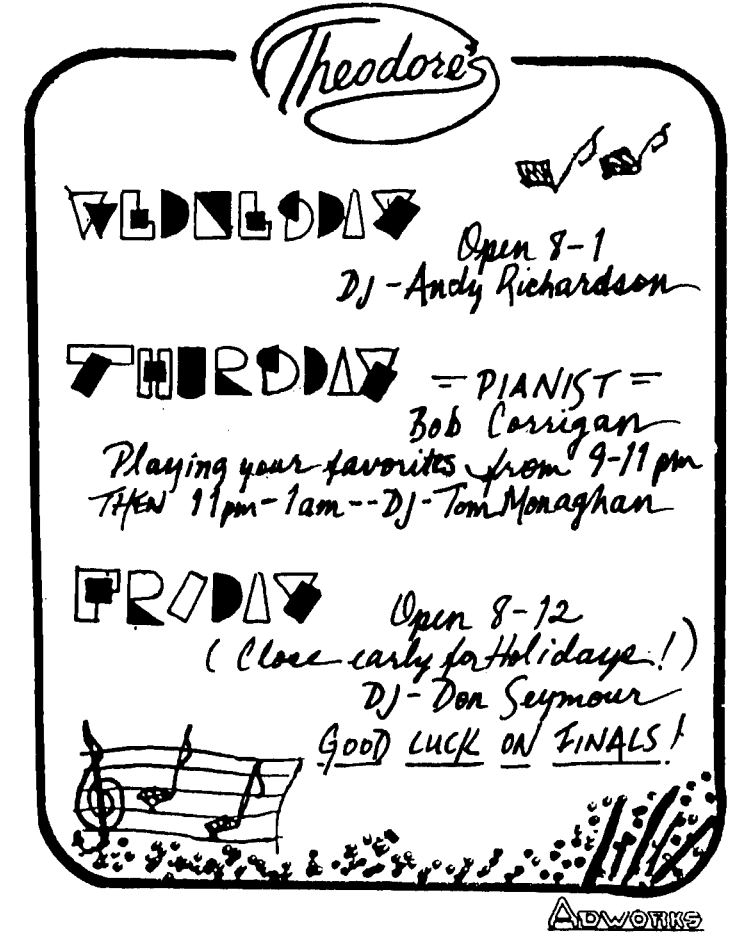 Theodore's
WEDNESDAY
Open 8-1
DJ - Andy Richardson
THURSDAY
= PIANIST =
Bob Corrigan
Playing your favorites from 9-11 pm
THEN 11pm - 1am -- DJ - Tom Monaghan
FRIDAY
Open 8-12
( Close early for Holidays! )
DJ - Don Seymour
GOOD LUCK ON FINALS!
ADWORKS